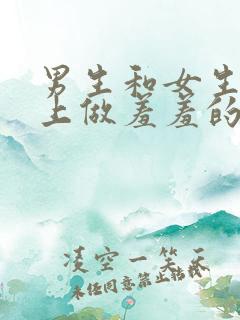 男生和女生
上做羞羞的
凌空一笑天
未经同意禁止转载